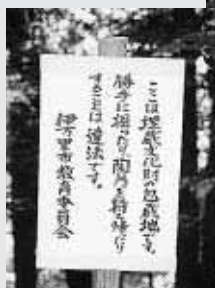 ここは埋蔵文化財の包蔵地です。
勝手に掘ったり、陶片を持ち帰ったり
することは違法です。
伊万里市教育委員会